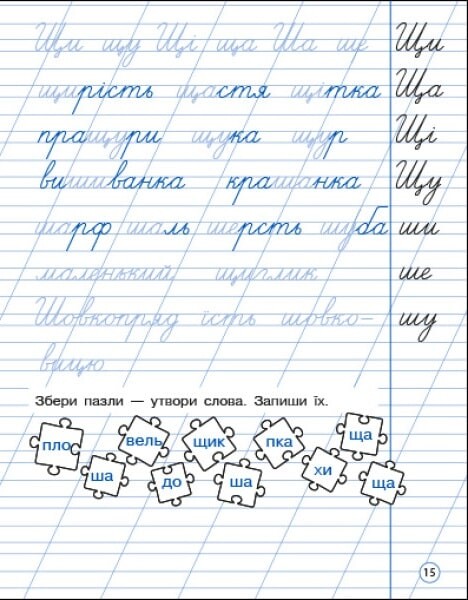 Щи щу Щі ща Ша ше Щи
щирість щастя щітка Ща
пращури щука щур Щі
вишиванка крашанка Щу
шарф шаль шерсть шуба ши
маленький щиглик ше
Шовкопряд їсть шовко- шу
вицю
Збери пазли — утвори слова. Запиши їх.
пло вель щик пка ща
ша до ша хи ща
15